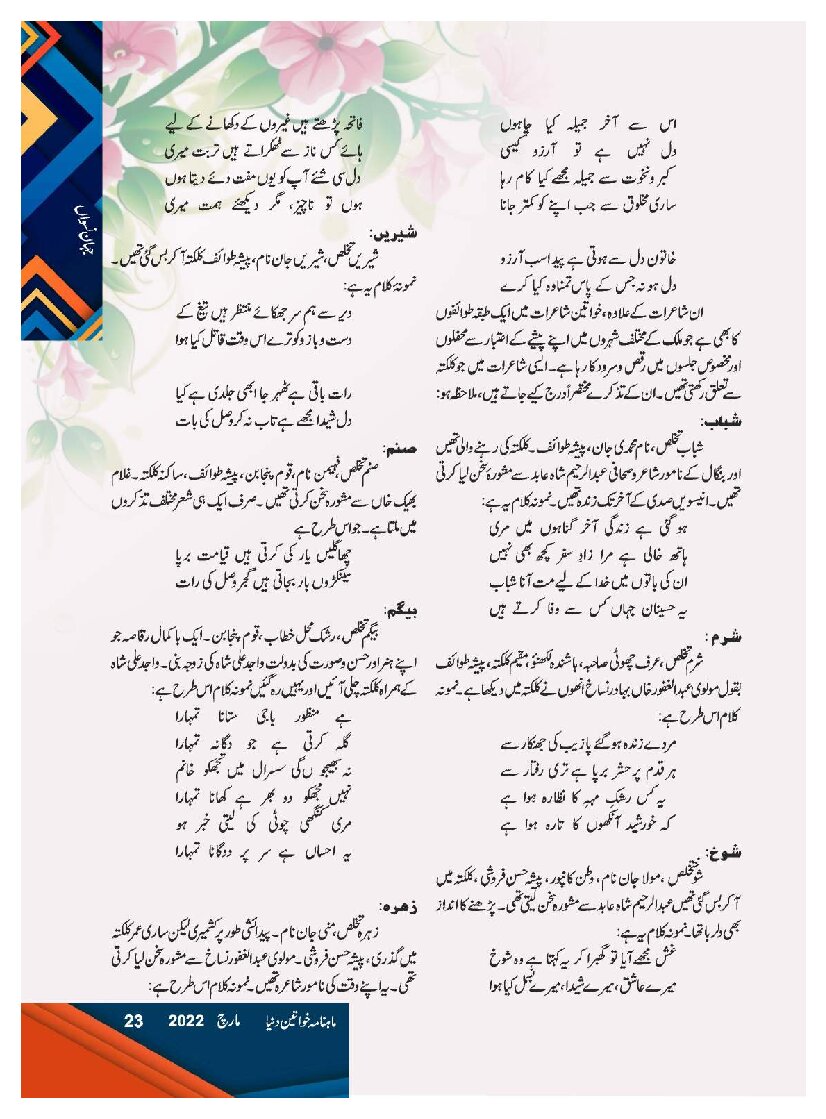 اس سے آخر جمیلہ کیا چاہوں
دل نہیں ہے تو آرزو کیسی
کبر و نخوت سے جمیلہ مجھے کیا کام رہا
ساری مخلوق سے جب اپنے کو کمتر جانا
خاتون دل سے ہوتی ہے پیدا سب آرزو
دل ہو نہ جس کے پاس تمنا وہ کیا کرے
ان شاعرات کے علاوہ، خواتین شاعرات میں ایک طبقہ طوائفوں
کا بھی ہے جو ملک کے مختلف شہروں میں اپنے پیشے کے اعتبار سے محفلوں
اور مخصوص جلسوں میں رقص و سرود کا رہا ہے۔ ایسی شاعرات میں جو کلکتہ
سے تعلق رکھتی تھیں۔ ان کے تذکرے مختصراً درج کیے جاتے ہیں، ملاحظہ ہو:
شباب:
شباب تخلص، نام محمدی جان، پیشہ طوائف۔ کلکتہ کی رہنے والی تھیں
اور بنگال کے نامور شاعر و صحافی عبدالرحیم شاہ عابد سے مشورہ سخن لیا کرتی
تھیں۔ انیسویں صدی کے آخر تک زندہ تھیں۔ نمونہ کلام یہ ہے:
ہو گئی ہے زندگی آخر گناہوں میں مری
ہاتھ خالی ہے مرا زادِ سفر کچھ بھی نہیں
ان کی باتوں میں خدا کے لیے مت آنا شباب
یہ حسینان جہاں کس سے وفا کرتے ہیں
شرم:
شرم تخلص، عرف چھوٹی صاحبہ، باشندہ لکھنؤ، مقیم کلکتہ، پیشہ طوائف
بقول مولوی عبدالغفور خاں بہادر نساخ انھوں نے کلکتہ میں دیکھا ہے۔ نمونہ
کلام اس طرح ہے:
مردے زندہ ہو گئے پازیب کی جھنکار سے
ہر قدم پر حشر برپا ہے تری رفتار سے
یہ کس رشکِ مہہ کا نظارہ ہوا ہے
کہ خورشید آنکھوں کا تارہ ہوا ہے
شوخ:
شوخ تخلص، مولا جان نام، وطن کانپور، پیشہ حسن فروشی، کلکتہ میں
آ کر بس گئی تھیں عبدالرحیم شاہ عابد سے مشورہ سخن لیتی تھی۔ پڑھنے کا انداز
بھی دلربا تھا۔ نمونہ کلام یہ ہے:
غش مجھے آیا تو گھبرا کر یہ کہتا ہے وہ شوخ
میرے عاشق، میرے شیدا، میرے بسمل کیا ہوا
فاتحہ پڑھتے ہیں غیروں کے دکھانے کے لیے
ہائے کس ناز سے ٹھکراتے ہیں تربت میری
دل سی شئے آپ کو یوں مفت دئے دیتا ہوں
ہوں تو ناچیز، مگر دیکھئے ہمت میری
شیریں:
شیریں تخلص، شیریں جان نام، پیشہ طوائف کلکتہ آ کر بس گئی تھیں۔
نمونۂ کلام یہ ہے:
دیر سے ہم سر جھکائے منتظر ہیں تیغ کے
دست و بازو کو ترے اس وقت قاتل کیا ہوا
رات باقی ہے ٹھہر جا ابھی جلدی ہے کیا
دل شیدا مجھے ہے تاب نہ کر وصل کی بات
صنم:
صنم تخلص، فہیمن نام، قوم پنجابن، پیشہ طوائف، ساکنہ کلکتہ۔ غلام
بھیک خاں سے مشورہ سخن کرتی تھیں۔ صرف ایک ہی شعر مختلف تذکروں
میں ملتا ہے۔ جو اس طرح ہے
چھاگلیں یار کی کرتی ہیں قیامت برپا
سینکڑوں بار بجاتی ہیں گجر وصل کی رات
بیگم:
بیگم تخلص، رشک محل خطاب، قوم پنجابن۔ ایک با کمال رقاصہ جو
اپنے ہنر اور حسن و صورت کی بدولت واجد علی شاہ کی زوجہ بنی۔ واجد علی شاہ
کے ہمراہ کلکتہ چلی آئیں اور یہیں رہ گئیں نمونہ کلام اس طرح ہے:
ہے منظور باجی ستانا تمہارا
گلہ کرتی ہے جو دگانہ تمہارا
نہ بھیجوں گی سسرال میں تجھکو خانم
نہیں مجھکو دو بھر ہے کھانا تمہارا
مری کنگھی چوٹی کی لیتی خبر ہو
یہ احساں ہے سر پر دوگانا تمہارا
زہرہ:
زہرہ تخلص، منی جان نام۔ پیدائشی طور پر کشمیری لیکن ساری عمر کلکتہ
میں گذری، پیشہ حسن فروشی۔ مولوی عبدالغفور نساخ سے مشورہ سخن لیا کرتی
تھی۔ یہ اپنے وقت کی نامور شاعرہ تھیں۔ نمونہ کلام اس طرح ہے:
جہان نسواں
ماہنامہ خواتین دنیا مارچ 2022 23